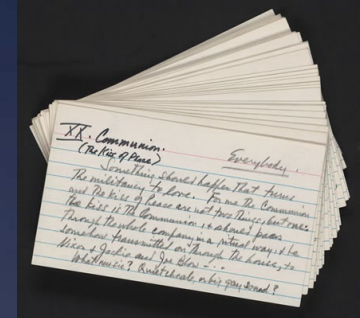 XX. Communion.
(The Kiss of Peace)
Everybody.
Something should happen that turns
the militancy to love. For me the Communion
and the Kiss of Peace are not two things, but one:
the kiss is the Communion, & should pass
through the whole company, in a mutual way, & be
somehow transmitted on through the house, to
Nixon & Jackie and Joe Blow - - -
What music? Quiet chorale, or big gay sound?